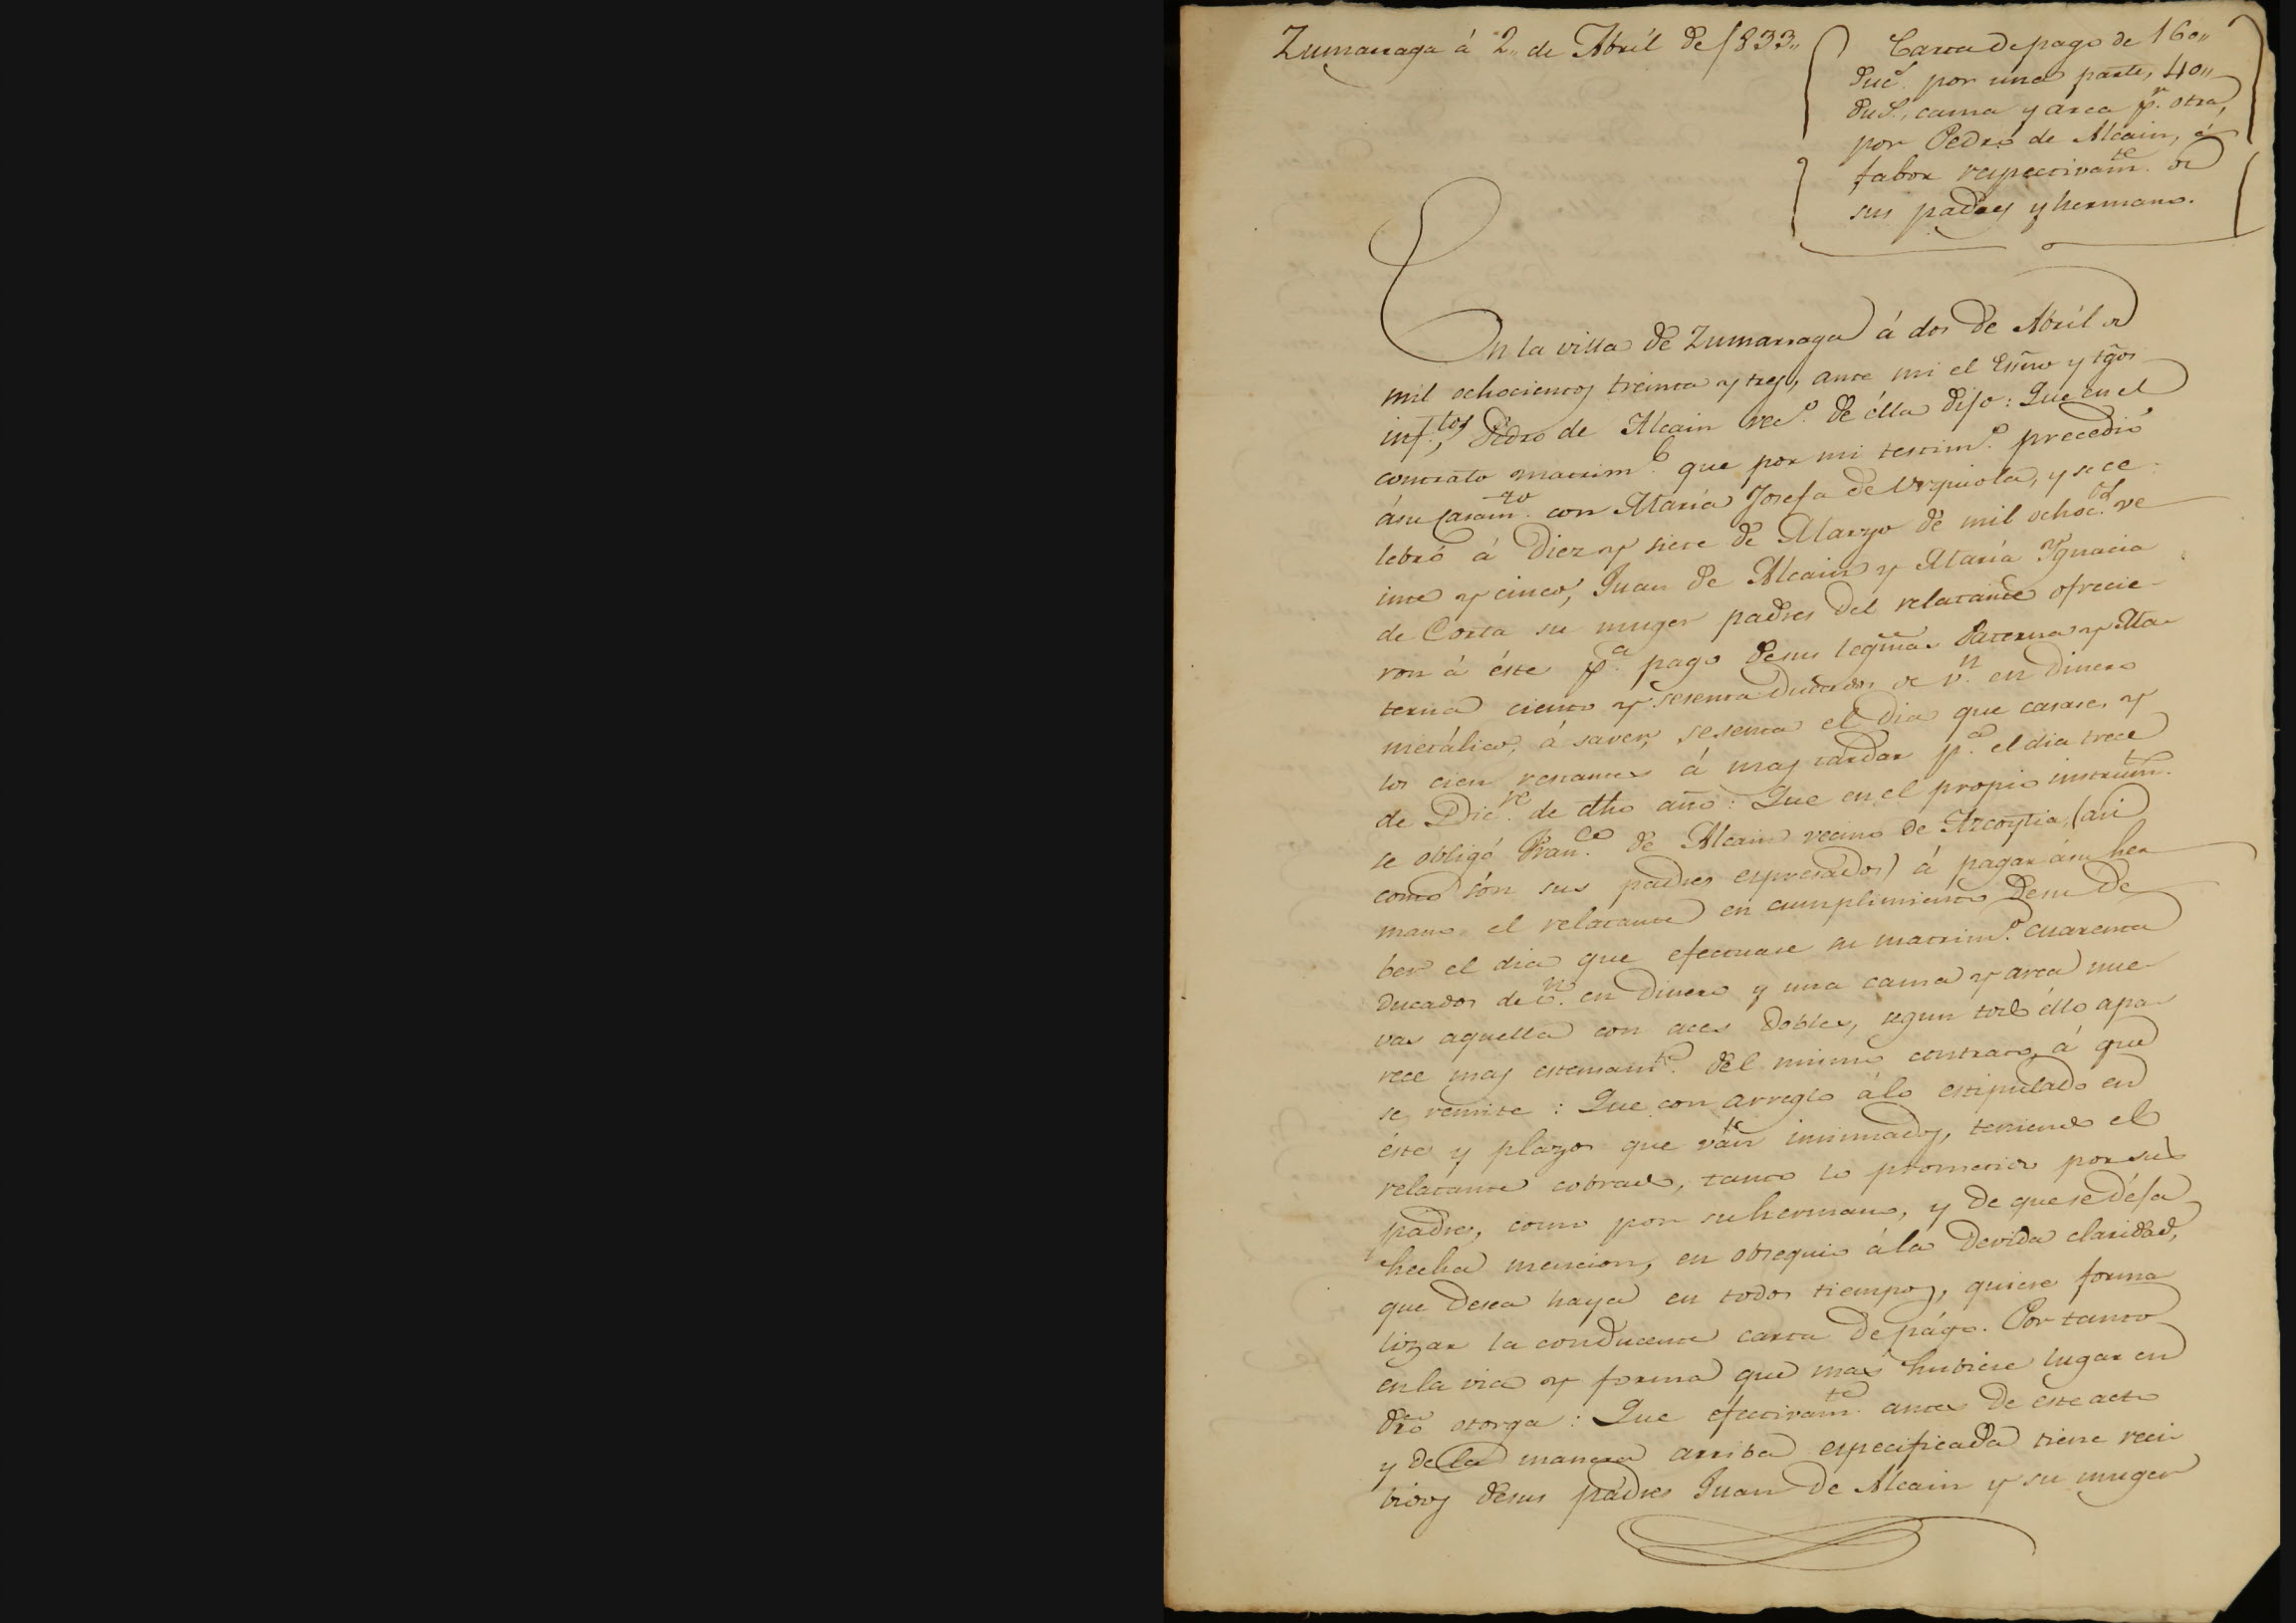 Zumarraga á 2,, de Abril de 1833,,
Carta de pago de 160,,
Duc.s por una parte, 40,,
Du.s, cama y arca p.r otra,
por Pedro de Alcain, á
fabor respectivam.te de
sus padres y hermano.
En la villa de Zumarraga á dos de Abril de
mil ochocientos treinta y tres, ante mi el Essno y tgos
inf.tos, Pedro de Alcain vec.o de élla dijo: Que en el
contrato matrim.l que por mi testim.o precedió
ásu casam.to con María Josefa de Urquiola, y se ce-
lebró á Diez y siete de Marzo de mil ochoc.tos ve
inte y cinco, Juan de Alcain y María Ygnacia
de Corta su muger padres del relatante ofrecie-
ron á éste p.a pago desus legmas Paterna y Ma-
terna ciento y sesenta Ducados de v.n en dinero
metálico, á saver, sesenta el dia que casase, y
los cien restantes á mas tardar p.a el dia trece
de Dic.re de dho año: Que en el propio instrum.to
se obligó Fran.co de Alcain vecino de Azcoytia, (asi
como són sus padres expresados) á pagar ásu her
mano el relatante en cumplimiento desu de
ber el dia que efectuase su matrim.o cuarenta
Ducados de v.n en dinero y una cama y arca nue-
vas aquella con aces dobles, segun todo éllo apa-
rece mas estensam.te del mismo contrato, á que
se remite: Que con arreglo álo estipulado en
éste y plazos que ván insinuados, teniendo el
relatante cobrado, tanto lo prometido por sus
padres, como por su hermano, y de que se déja
hecha mencion, en obsequio ála devida claridad,
que desea haya en todos tiempos, quiere forma
lizar la conducente carta de págo. Por tanto
en la via y forma que mas hubiere lugar en
dro otorga: Que efectivam.te antes de este acto
y de la manera arriba especificada tiene reci-
bidos desus padres Juan de Alcain y su muger